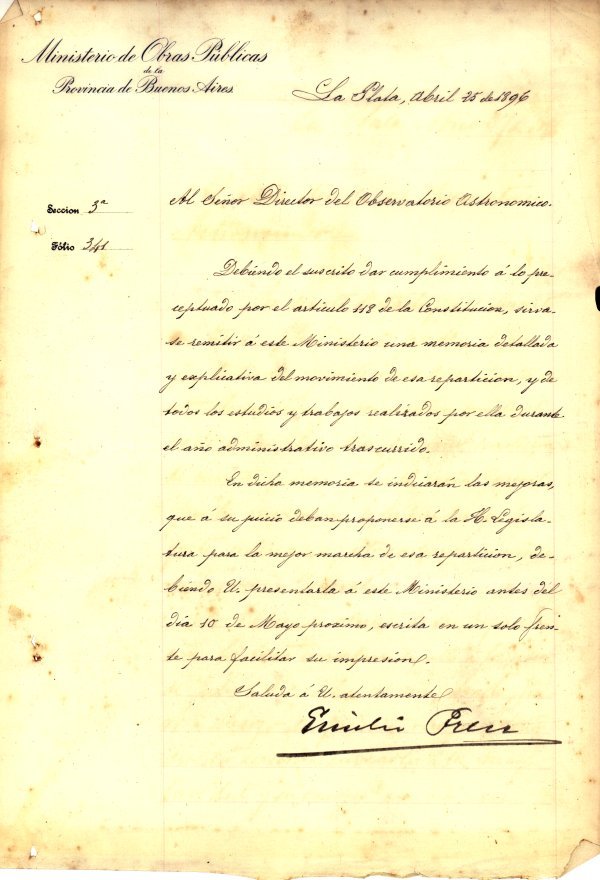 Ministerio de Obras Públicas
de la
Provincia de Buenos Aires
La Plata, Abril 25 de 1896
Seccion 3a
Fólio 341
Al Señor Director del Observatorio Astronomico.
Debiendo el suscrito dar cumplimiento á lo pre-
ceptuado por el articulo 118 de la Constitucion, sirva-
se remitir á este Ministerio una memoria detallada
y esplicativa del movimiento de esa reparticion, y de
todos los estudios y trabajos realizados por ella durante
el año administrativo trascurrido.
En dicha memoria se indicarán las mejoras,
que á su juicio deban proponerse á la H. Legisla-
tura para la mejor marcha de esa reparticion, de-
biendo U. presentarla á este Ministerio antes del
dia 10 de Mayo proximo, escrita en un solo fren-
te para facilitar su impresion.
Saluda á U. atentamente
Emilio Frers